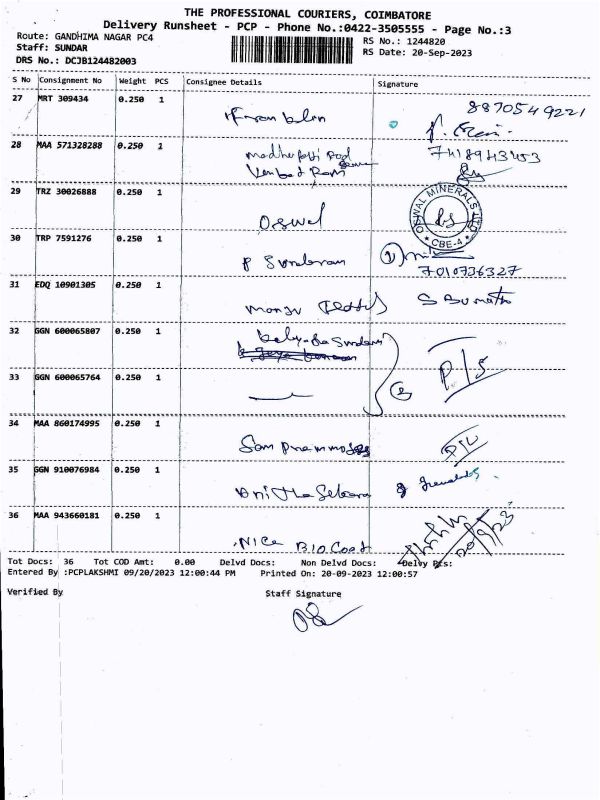 THE PROFESSIONAL COURIERS, COIMBATORE
Delivery Runsheet - PCP - Phone No.:0422-3505555 - Page No.:3
Route: GANDHIMA NAGAR PC4
Staff: SUNDAR
DRS No.: DCJB124482003
RS No.: 1244820
RS Date: 20-Sep-2023
S No Consignment No Weight PCS Consignee Details Signature
27 MRT 309434 0.250 1 8870549221
28 MAA 571328288 0.250 1 7418943453
Venkat Ram
29 TRZ 30026888 0.250 1 Oswal
OSWAL MINERALS LTD
CBE-4
30 TRP 7591276 0.250 1 P Sundaram
7010736327
31 EDQ 10901305 0.250 1
32 GGN 600065807 0.250 1
33 GGN 600065764 0.250 1 P/S
34 MAA 860174995 0.250 1
35 GGN 910076984 0.250 1
36 MAA 943660181 0.250 1 Nice B.10. Coat
20/9/23
Tot Docs: 36 Tot COD Amt: 0.00 Delvd Docs: Non Delvd Docs: Delvy Pcs:
Entered By :PCPLAKSHMI 09/20/2023 12:00:44 PM Printed On: 20-09-2023 12:00:57
Verified By Staff Signature